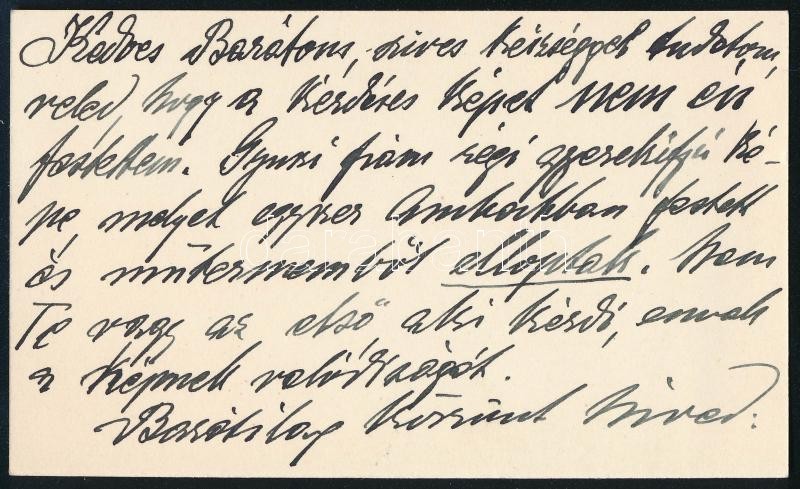 Kedves Barátom, szives készséggel tudatom
veled, hogy a kérdéses képet nem én
festettem. Gyuszi fiam régi gyerekifjú ké-
pe, melyet egyszer festett
és műtermemből elloptak. Nem
Te vagy az első aki kérdi, ennek
a képnek valódiságát.
Barátilag köszönt hived:
darabanth